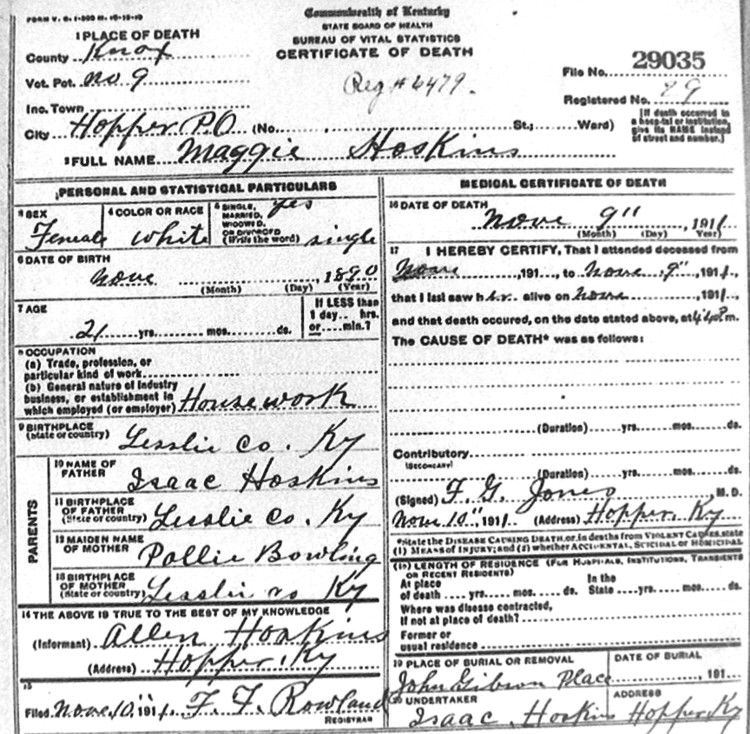 FORM V. S. 1-300 M. 10-19-10
Commonwealth of Kentucky
STATE BOARD OF HEALTH
BUREAU OF VITAL STATISTICS
CERTIFICATE OF DEATH
1 PLACE OF DEATH
County Knox
Vot. Pct. No 9
Inc. Town
City Hopper P.O (No. St.; Ward)
Reg # 4479.
File No. 29035
Registered No. 29
[If death occurred in a hospital or institution, give its NAME instead of street and number.]
2 FULL NAME Maggie Hoskins
PERSONAL AND STATISTICAL PARTICULARS
3 SEX
Female
4 COLOR OR RACE
White
5 SINGLE, MARRIED, WIDOWED, OR DIVORCED (Write the word)
yes
single
6 DATE OF BIRTH
Nove , 1890
(Month) (Day) (Year)
7 AGE
21 yrs. mos. ds.
If LESS than
1 day.... hrs.
or.... min.?
8 OCCUPATION
(a) Trade, profession, or
particular kind of work
(b) General nature of industry
business, or establishment in
which employed (or employer) Housework
9 BIRTHPLACE
(State or country) Lesslie co. Ky
PARENTS
10 NAME OF FATHER Isaac Hoskins
11 BIRTHPLACE OF FATHER (State or country) Lesslie co. Ky
12 MAIDEN NAME OF MOTHER Pollie Bowling
13 BIRTHPLACE OF MOTHER (State or country) Lesslie co Ky
14 THE ABOVE IS TRUE TO THE BEST OF MY KNOWLEDGE
(Informant) Allen Hoskins
(Address) Hopper, Ky
15
Filed Nove, 10", 1911. F. F. Rowland
REGISTRAR
MEDICAL CERTIFICATE OF DEATH
16 DATE OF DEATH
Nove 9", 1911
(Month) (Day) (Year)
17 I HEREBY CERTIFY, That I attended deceased from
Nove , 191 , to Nove 9", 1911,
that I last saw her alive on Nove , 1911,
and that death occured, on the date stated above, at m.
The CAUSE OF DEATH* was as follows:
(Duration) yrs. mos. ds.
Contributory
(SECONDARY)
(Duration) yrs. mos. ds.
(Signed) F. G. Jones M.D.
Nove 10", 1911 (Address) Hopper, Ky
*State the DISEASE CAUSING DEATH, or, in deaths from VIOLENT CAUSES, state
(1) MEANS OF INJURY; and (2) whether ACCIDENTAL, SUICIDAL or HOMICIDAL
18 LENGTH OF RESIDENCE (FOR HOSPITALS, INSTITUTIONS, TRANSIENTS
OR RECENT RESIDENTS)
At place In the
of death .... yrs. .... mos. .... ds. State .... yrs. .... mos. .... ds.
Where was disease contracted,
if not at place of death?
Former or
usual residence
19 PLACE OF BURIAL OR REMOVAL
John Gibson Place
DATE OF BURIAL
, 191
20 UNDERTAKER
Isaac Hoskins
ADDRESS
Hopper, Ky